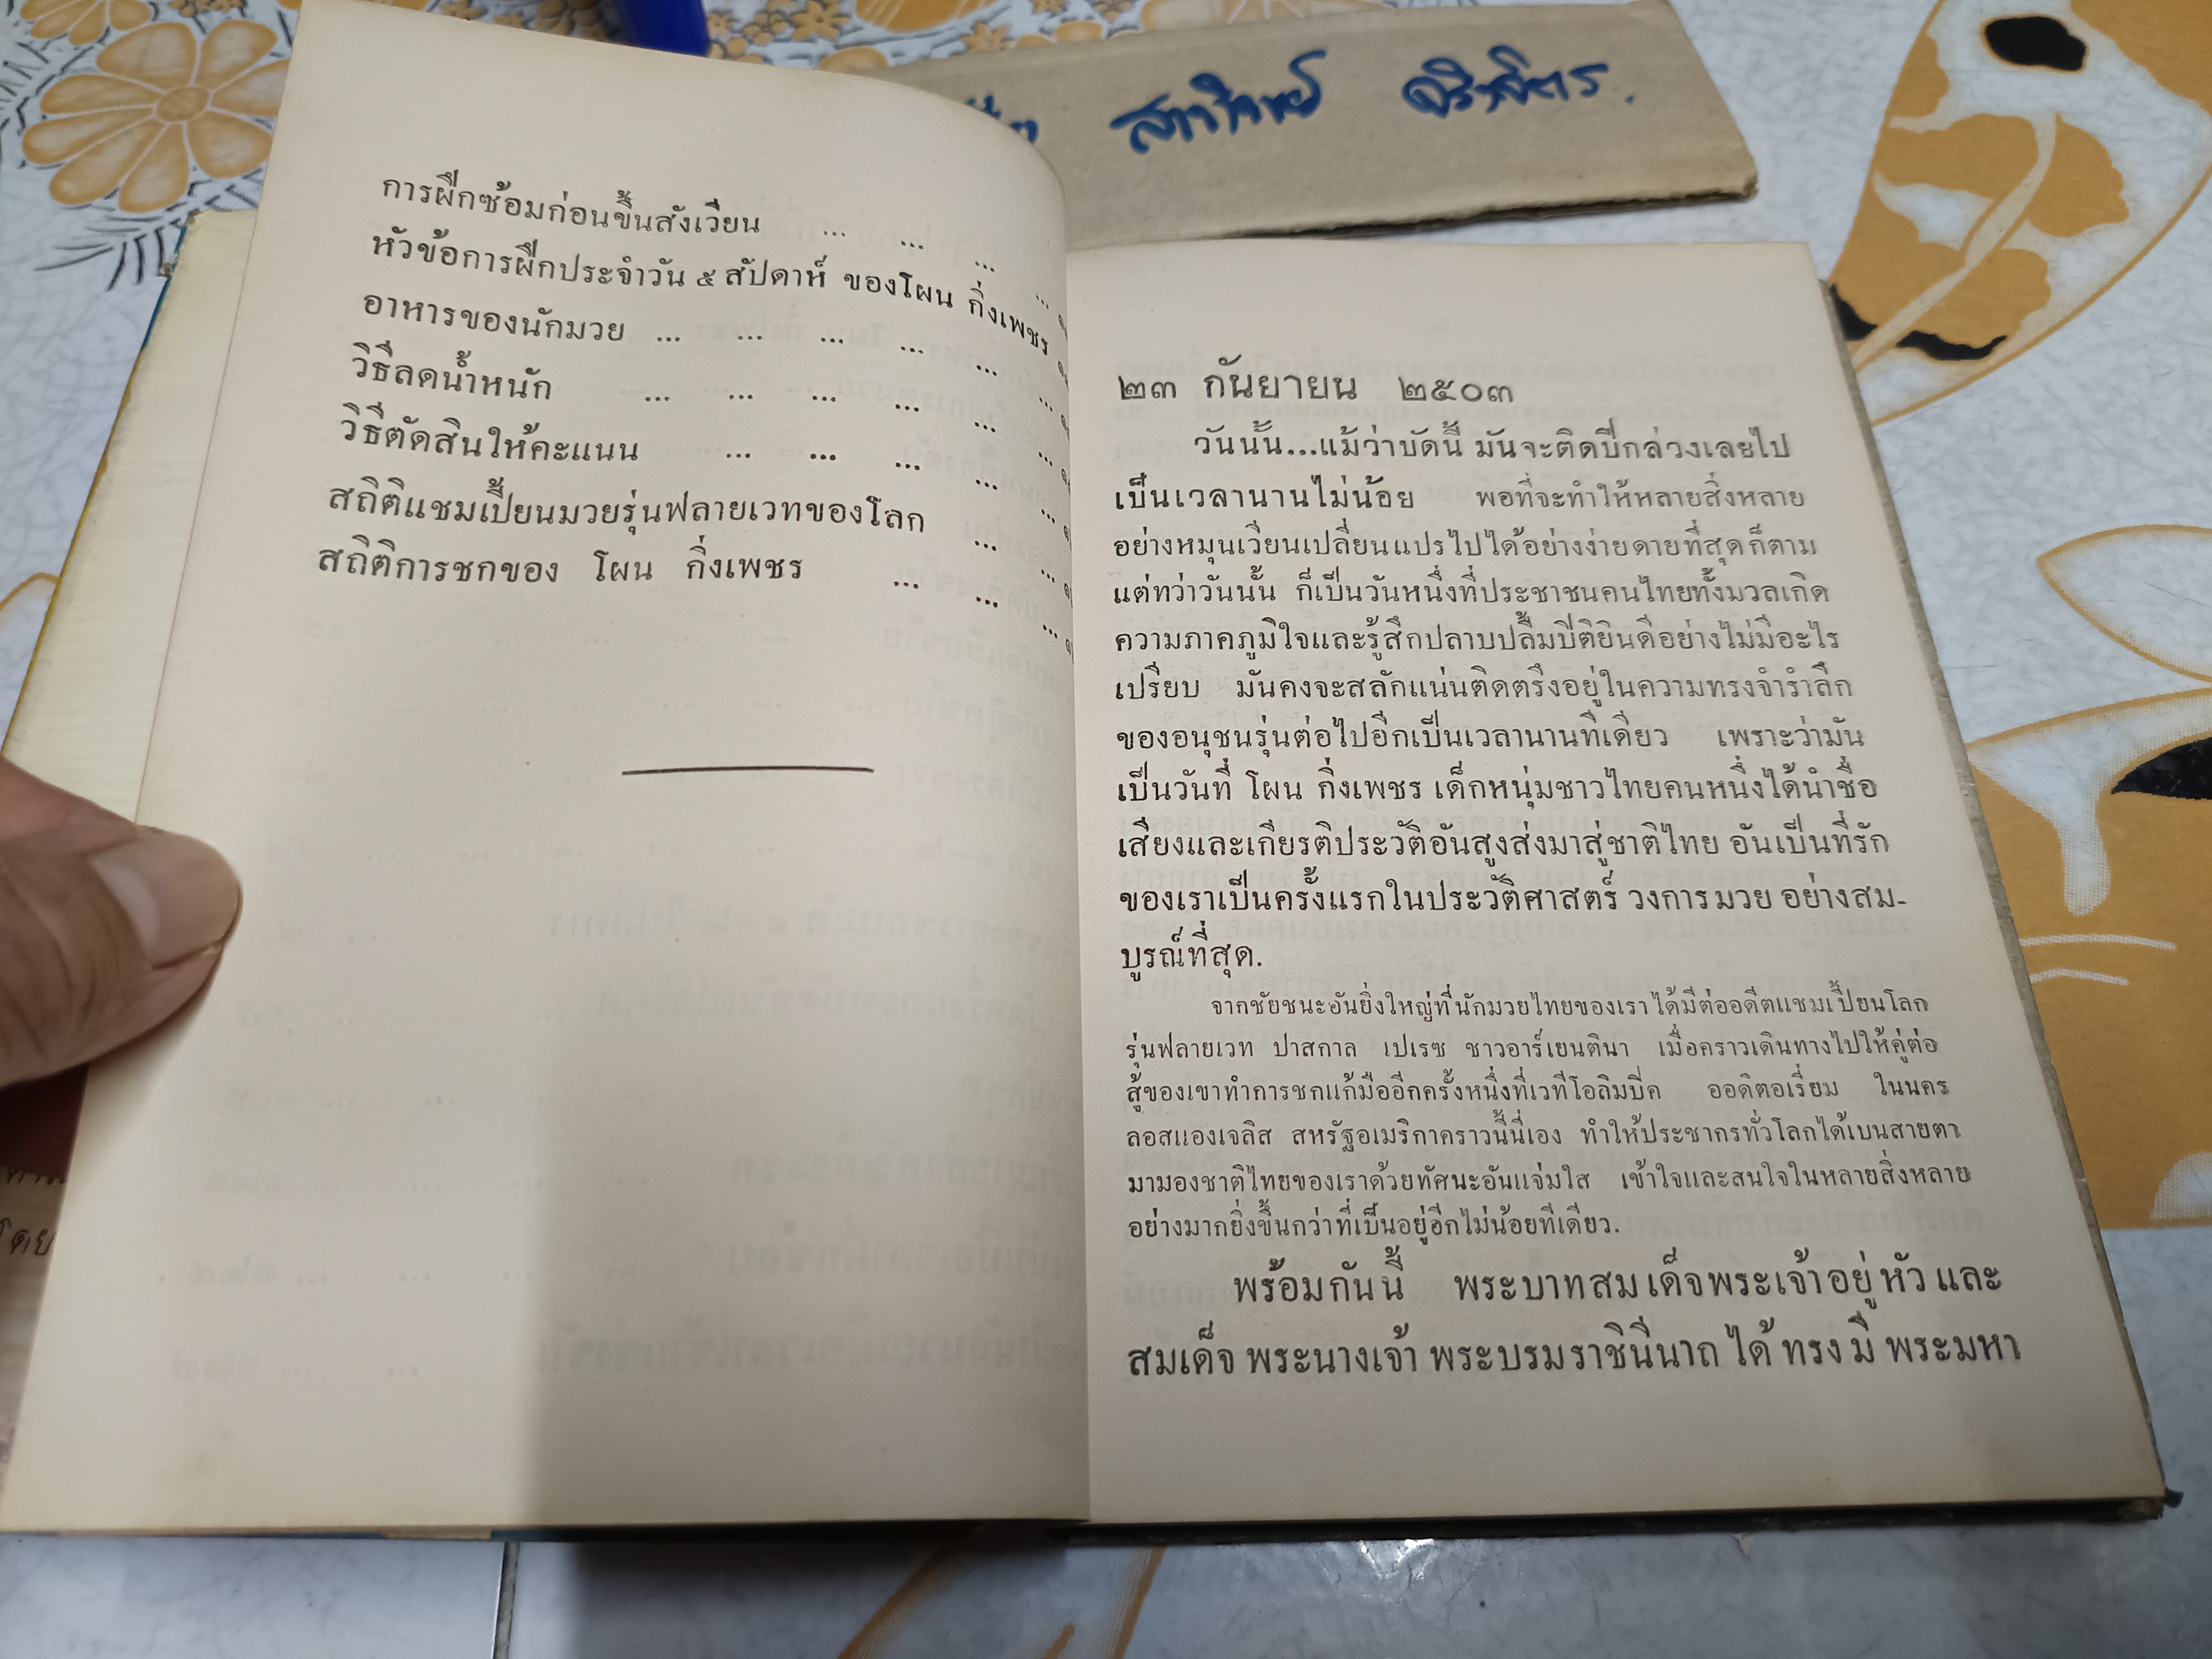 สาวิตรี
การฝึกซ้อมก่อนขึ้นสังเวียน ... ... ... ...
หัวข้อการฝึกประจำวัน ๕ สัปดาห์ ของโผน กิ่งเพชร
อาหารของนักมวย ... ... ... ... ... ...
วิธีลดน้ำหนัก ... ... ... ... ... ...
วิธีตัดสินให้คะแนน ... ... ... ... ...
สถิติแชมเปี้ยนมวยรุ่นฟลายเวทของโลก ... ...
สถิติการชกของ โผน กิ่งเพชร ... ... ...
๒๓ กันยายน ๒๕๐๓
วันนั้น...แม้ว่าบัดนี้ มันจะติดปีกล่วงเลยไป
เป็นเวลานานไม่น้อย พอที่จะทำให้หลายสิ่งหลาย
อย่างหมุนเวียนเปลี่ยนแปรไปได้อย่างง่ายดายที่สุดก็ตาม
แต่ทว่าวันนั้น ก็เป็นวันหนึ่งที่ประชาชนคนไทยทั้งมวลเกิด
ความภาคภูมิใจและรู้สึกปลาบปลื้มปีติยินดีอย่างไม่มีอะไร
เปรียบ มันคงจะสลักแน่นติดตรึงอยู่ในความทรงจำรำลึก
ของอนุชนรุ่นต่อไปอีกเป็นเวลานานทีเดียว เพราะว่ามัน
เป็นวันที่ โผน กิ่งเพชร เด็กหนุ่มชาวไทยคนหนึ่งได้นำชื่อ
เสียงและเกียรติประวัติอันสูงส่งมาสู่ชาติไทย อันเป็นที่รัก
ของเราเป็นครั้งแรกในประวัติศาสตร์ วงการมวย อย่างสม-
บูรณ์ที่สุด.
จากชัยชนะอันยิ่งใหญ่ที่นักมวยไทยของเราได้มีต่ออดีตแชมเปี้ยนโลก
รุ่นฟลายเวท ปาสกาล เปเรซ ชาวอาร์เยนตินา เมื่อคราวเดินทางไปให้คู่ต่อ
สู้ของเขาทำการชกแก้มืออีกครั้งหนึ่งที่เวทีโอลิมปิค ออดิตอเรี่ยม ในนคร
ลอสแองเจลิส สหรัฐอเมริกาคราวนี้นี่เอง ทำให้ประชากรทั่วโลกได้เบนสายตา
มามองชาติไทยของเราด้วยทัศนะอันแจ่มใส เข้าใจและสนใจในหลายสิ่งหลาย
อย่างมากยิ่งขึ้นกว่าที่เป็นอยู่อีกไม่น้อยทีเดียว.
พร้อมกันนี้ พระบาทสมเด็จพระเจ้าอยู่หัว และ
สมเด็จ พระนางเจ้า พระบรมราชินีนาถ ได้ ทรง มี พระมหา